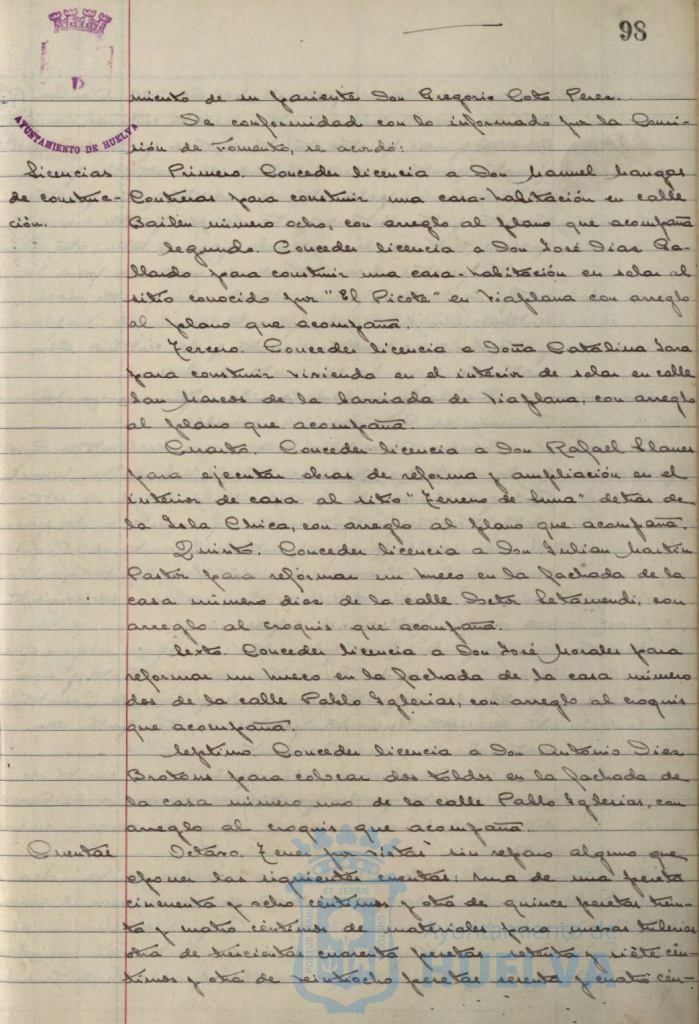 98
AYUNTAMIENTO DE HUELVA
miento de su pariente Don Gregorio Coto Perez.
De conformidad con lo informado por la Comi-
sión de Fomento, se acordó:
Licencias
de construc-
ción.
Primero. Conceder licencia a Don Manuel Mangas
Contreras para construir una casa-habitación en calle
Bailén número ocho, con arreglo al plano que acompaña
Segundo. Conceder licencia a Don José Díaz Ga-
llardo para construir una casa-habitación en solar al
sitio conocido por "El Picote" en Viaplana con arreglo
al plano que acompaña.
Tercero. Conceder licencia a Doña Catalina Jara
para construir vivienda en el interior de solar en calle
San Marcos de la barriada de Viaplana, con arreglo
al plano que acompaña.
Cuarto. Conceder licencia a Don Rafael Llanes
para ejecutar obras de reforma y ampliación en el
interior de casa al sitio "Terreno de Luna" detrás de
la Isla Chica, con arreglo al plano que acompaña.
Quinto. Conceder licencia a Don Julian Martín
Pastor para reformar un hueco en la fachada de la
casa número diez de la calle Doctor Letamendi, con
arreglo al croquis que acompaña.
Sexto. Conceder licencia a Don José Morales para
reformar un hueco en la fachada de la casa número
dos de la calle Pablo Iglesias, con arreglo al croquis
que acompaña.
Septimo. Conceder licencia a Don Antonio Diaz
Brotons para colocar dos toldos en la fachada de
la casa número uno de la calle Pablo Iglesias, con
arreglo al croquis que acompaña.
Cuentas
Octavo. Tener por vistas sin reparo alguno que
oponer las siguientes cuentas: una de una peseta
cincuenta y ocho céntimos y otra de quince pesetas trein-
ta y cuatro céntimos de materiales para nuevas tuberias
otra de trescientas cuarenta pesetas setenta y siete cén-
timos y otra de veintiocho pesetas sesenta y cuatro cén-
Ayuntamiento de
HUELVA